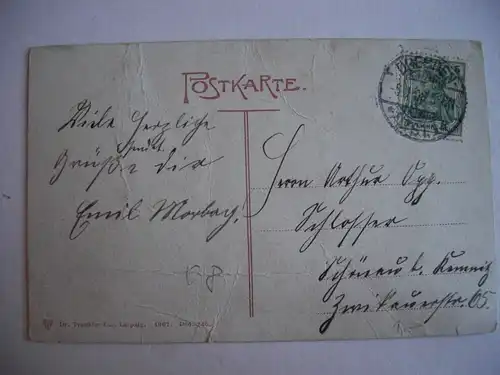 POSTKARTE.
Viele herzliche
Grüße
sendet dir
Emil Morbach!
Herrn Arthur Opp.
Schlosser
Schönau b. Kemnitz
Zwikauerstr. 65.
Dr. Trenkler Co., Leipzig. 1907.